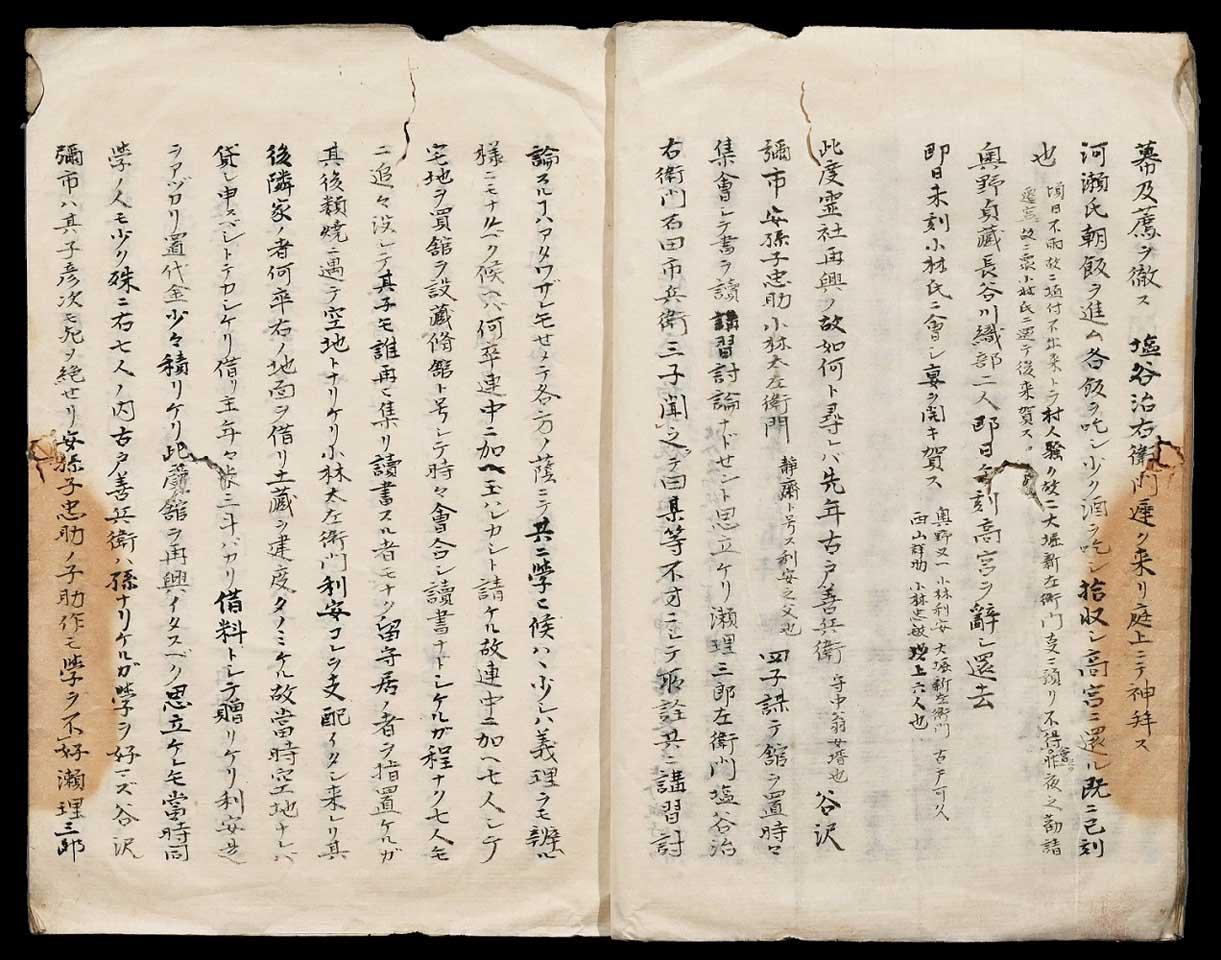 幕及薦ヲ徹ス 塩谷治右衛門遅ク来リ庭上ニテ神拜ス
河瀬氏朝飯ヲ進ム各飯ヲ吃シ少ク酒ヲ吃シ拾収シ高宮ニ還ル既ニ已刻
也
頃日不雨故ニ植付不出来トテ村人騒ク故ニ大堀新左衛門支ニ預リ不得會昨夜之勧請
遷宮故ニ票小林氏ニ遅テ後来賀ス
奥野貞藏長谷川織部二人即日午刻高宮ヲ辭シ還去
即日未刻小林氏ニ會シ宴ヲ開キ賀ス
奥野又一 小林利安 大堀新左衛門 古戸可久
西山詳助 小林忠敏 以上六人也
此度霊社再興ノ故如何ト尋レバ先年古戸善兵衛 守中翁女婿也 谷沢
彌市 安孫子忠助 小林太左衛門 静齋ト号ス利安之父也 四子謀テ館ヲ置時々
集會シテ書ヲ讀講習討論ナドセント思立ケリ瀬理三郎左衛門塩谷治
右衛門石田市兵衛三子聞之テ曰某等不才ニシテ所詮共ニ講習討
論スルヿハアタワザレモせメテ各方ノ蔭ニテ共ニ學ヒ候ハヽ少シハ義理ヲモ辨ル
様ニモナルベク候ヘハ何卒連中ニ加ヘ玉ハレカシト請ケル故連中ニ加ヘ七人シテ
宅地ヲ買舘ヲ設藏脩舘ト号シテ時々會合シ讀書ナトシケルガ程ナク七人モ
ニ追々没シテ其子モ誰再ヒ集リ讀書スル者モナク留守居ノ者ヲ指置ケルガ
其後類焼ニ遇テ空地トナリケリ小林太左衛門利安コレヲ支配イタシ来レリ其
後隣家ノ者何卒右ノ地面ヲ借リ土藏ヲ建度タノミケル故當時空地ナレバ
貸シ申スベシトテカシケリ借リ主年々米二斗バカリ借料トシテ贈リケリ利安是
ヲアヅカリ置代金少々積リケリ此齋舘ヲ再興イタスベク思立ケレモ當時同
學ノ人モ少ク殊ニ右七人ノ内古戸善兵衛ハ孫ナリケルガ學ヲ好マズ谷沢
彌市ハ其子彦次モ死ヲ絶せリ安孫子忠助ノ子助作モ學ヲ不好瀬理三郎